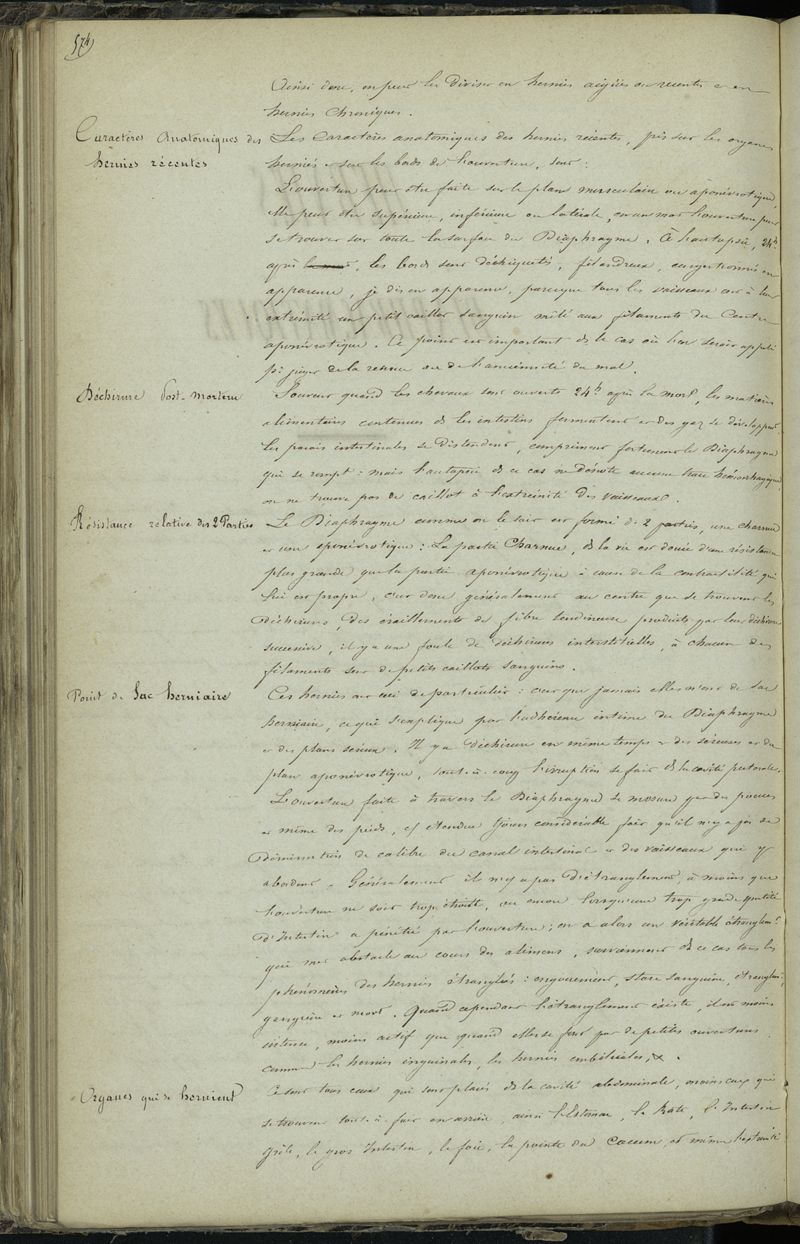 574
Ainsi donc, on peut les Diviser en hernies aigües ou recentes et en
hernies Chroniques.
Caractères Anatomiques des
hernies récentes
Les Caractères anatomiques des hernies récentes, pris sur les organes
herniés et sur les bords de l'ouverture, sont :
L'ouverture peut être faite sur le plan musculaire ou aponévrotique,
elle peut être supérieure, inférieure ou latérale, en un mot l'ouverture peut
se trouver sur toute la surface du Diaphragme. À l'autopsie, 24h
après les bords sont déchiquetés, filandreux, congestionnés en
apparence, je dis en apparence, parceque tous les vaisseaux ont à leur
extrémité un petit caillot sanguin mêlé aux filaments du Centre
aponévrotique. Ce point est important ds le cas où l'on serait appelé
pr juger de la récence ou de l'ancienneté du mal.
Déchirure Post-Mortem
Souvent quand les chevaux sont ouverts 24h après la mort, les matières
alimentaires contenues ds les intestins fermentent et des gaz se développent
les parois intestinales se distendent, compriment fortement le Diaphragme
qui se rompt : mais l'autopsie ds ce cas ne dénote aucune trace hémorrhagique
on ne trouve pas de caillot à l'extrémité des vaisseaux.
Résistance relative des 2 Parties
Le Diaphragme comme on le sait est formé de 2 parties, une charnue
et une aponévrotique : La partie Charnue, ds la vie est douée d'une résistance
plus grande que la partie aponévrotique à cause de la contractilité qui
lui est propre, c'est donc généralement au centre que se trouvent les
Déchirures, Des éraillements de fibre tendineuse produits par leur déchirure
successive, il y a une foule de déchirures interstitielles, à chacun des
filaments sont de petits caillots sanguins.
Point de Sac herniaire
Ces hernies ont ceci de particulier : c'est que jamais elles n'ont de sac
herniaire, ce qui s'explique par l'adhérence intime du Diaphragme
et des plans séreux. Il y a déchirure en même temps et des séreuses et du
plan aponévrotique, tout-à-coup l'irruption se fait ds la cavité pectorale.
L'ouverture faite à travers le Diaphragme se mesure par des pouces
et même des pieds, cette étendue tjours considérable fait qu'il n'y a pas de
diminution de calibre du canal intestinal et des vaisseaux qui y
abordent. Généralement il n'y a pas D'étranglement, à moins que
l'ouverture ne soit trop étroite, ou encore lorsqu'une trop grande quantité
d'Intestin a pénétré par l'ouverture ; on a alors un véritable étranglemt
qui met obstacle au cours des alimens, surviennent ds ce cas tous les
phénomènes des hernies étranglées : engouement, stase sanguine, étranglemt,
gangrène et mort. Quand cependant l'étranglement existe, il est moins
intense, moins actif que quand elles se font par de petites ouvertures
comme les hernies inguinales, les hernies ombilicales, &.
Organes qui se hernient
Ce sont tous ceux qui sont placés ds la cavité abdominale, moins ceux qui
se trouvent tout-à-fait en arrière, ainsi l'Estomac, la Rate, l'Intestin
grêle, le gros Intestin, le foie, la pointe du Caecum et même l'extrémité